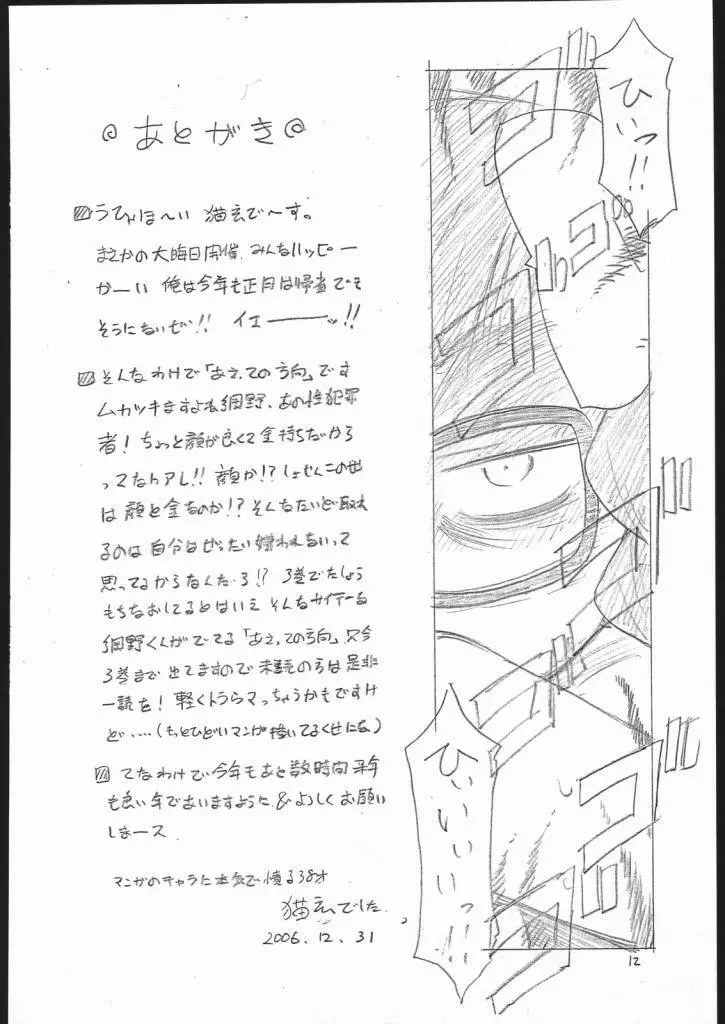 あとがき
うひょほ〜い 猫玄で〜す。
まさかの大晦日開催、みんなハッピー
かーい 俺は今年も正月は帰省でき
そうにないぜ!! イエーーーッ!!
そんなわけで「あえての方向」です
ムカツキますよね網野、あの性犯罪
者! ちょっと顔が良くて金持ちだから
ってなんアレ!! 顔か!? しょせんこの世
は顔と金なのか!? そんなたいど取れ
るのは自分はぜったい嫌われないって
思ってるからなんだろ!? 3巻でたしょう
もちなおしてるとはいえ そんなサイテーな
網野くんがでてる「あえての方向」只今
3巻まで出てますので未読の方は是非
一読を! 軽くトラウマっちゃうかもですけ
ど‥‥(もっとひどいマンガ描いてるくせにな)
てなわけで今年もあと数時間 来年
も良い年でありますように & よろしくお願い
しまース
マンガのキャラに本気で憤る38才
猫玄でした。
2006.12.31
ひいっ!!
ひいいいいっ!!
12